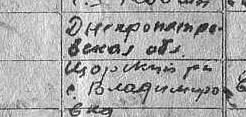 Днепропетро-
вская обл.
Щорский р-н
с. Владимиро
вка